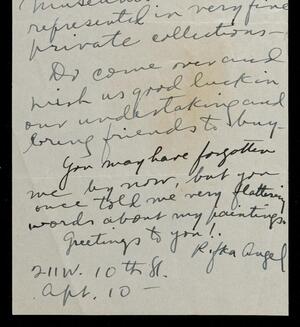 museums
represented in very fine
private collections—
Do come over and
wish us good luck in
our undertaking and
bring friends to buy—
You may have forgotten
me by now, but you
once told me very flattering
words about my paintings.
Greetings to you!.
Rifka Angel
211 W. 10th St.
Apt. 10—